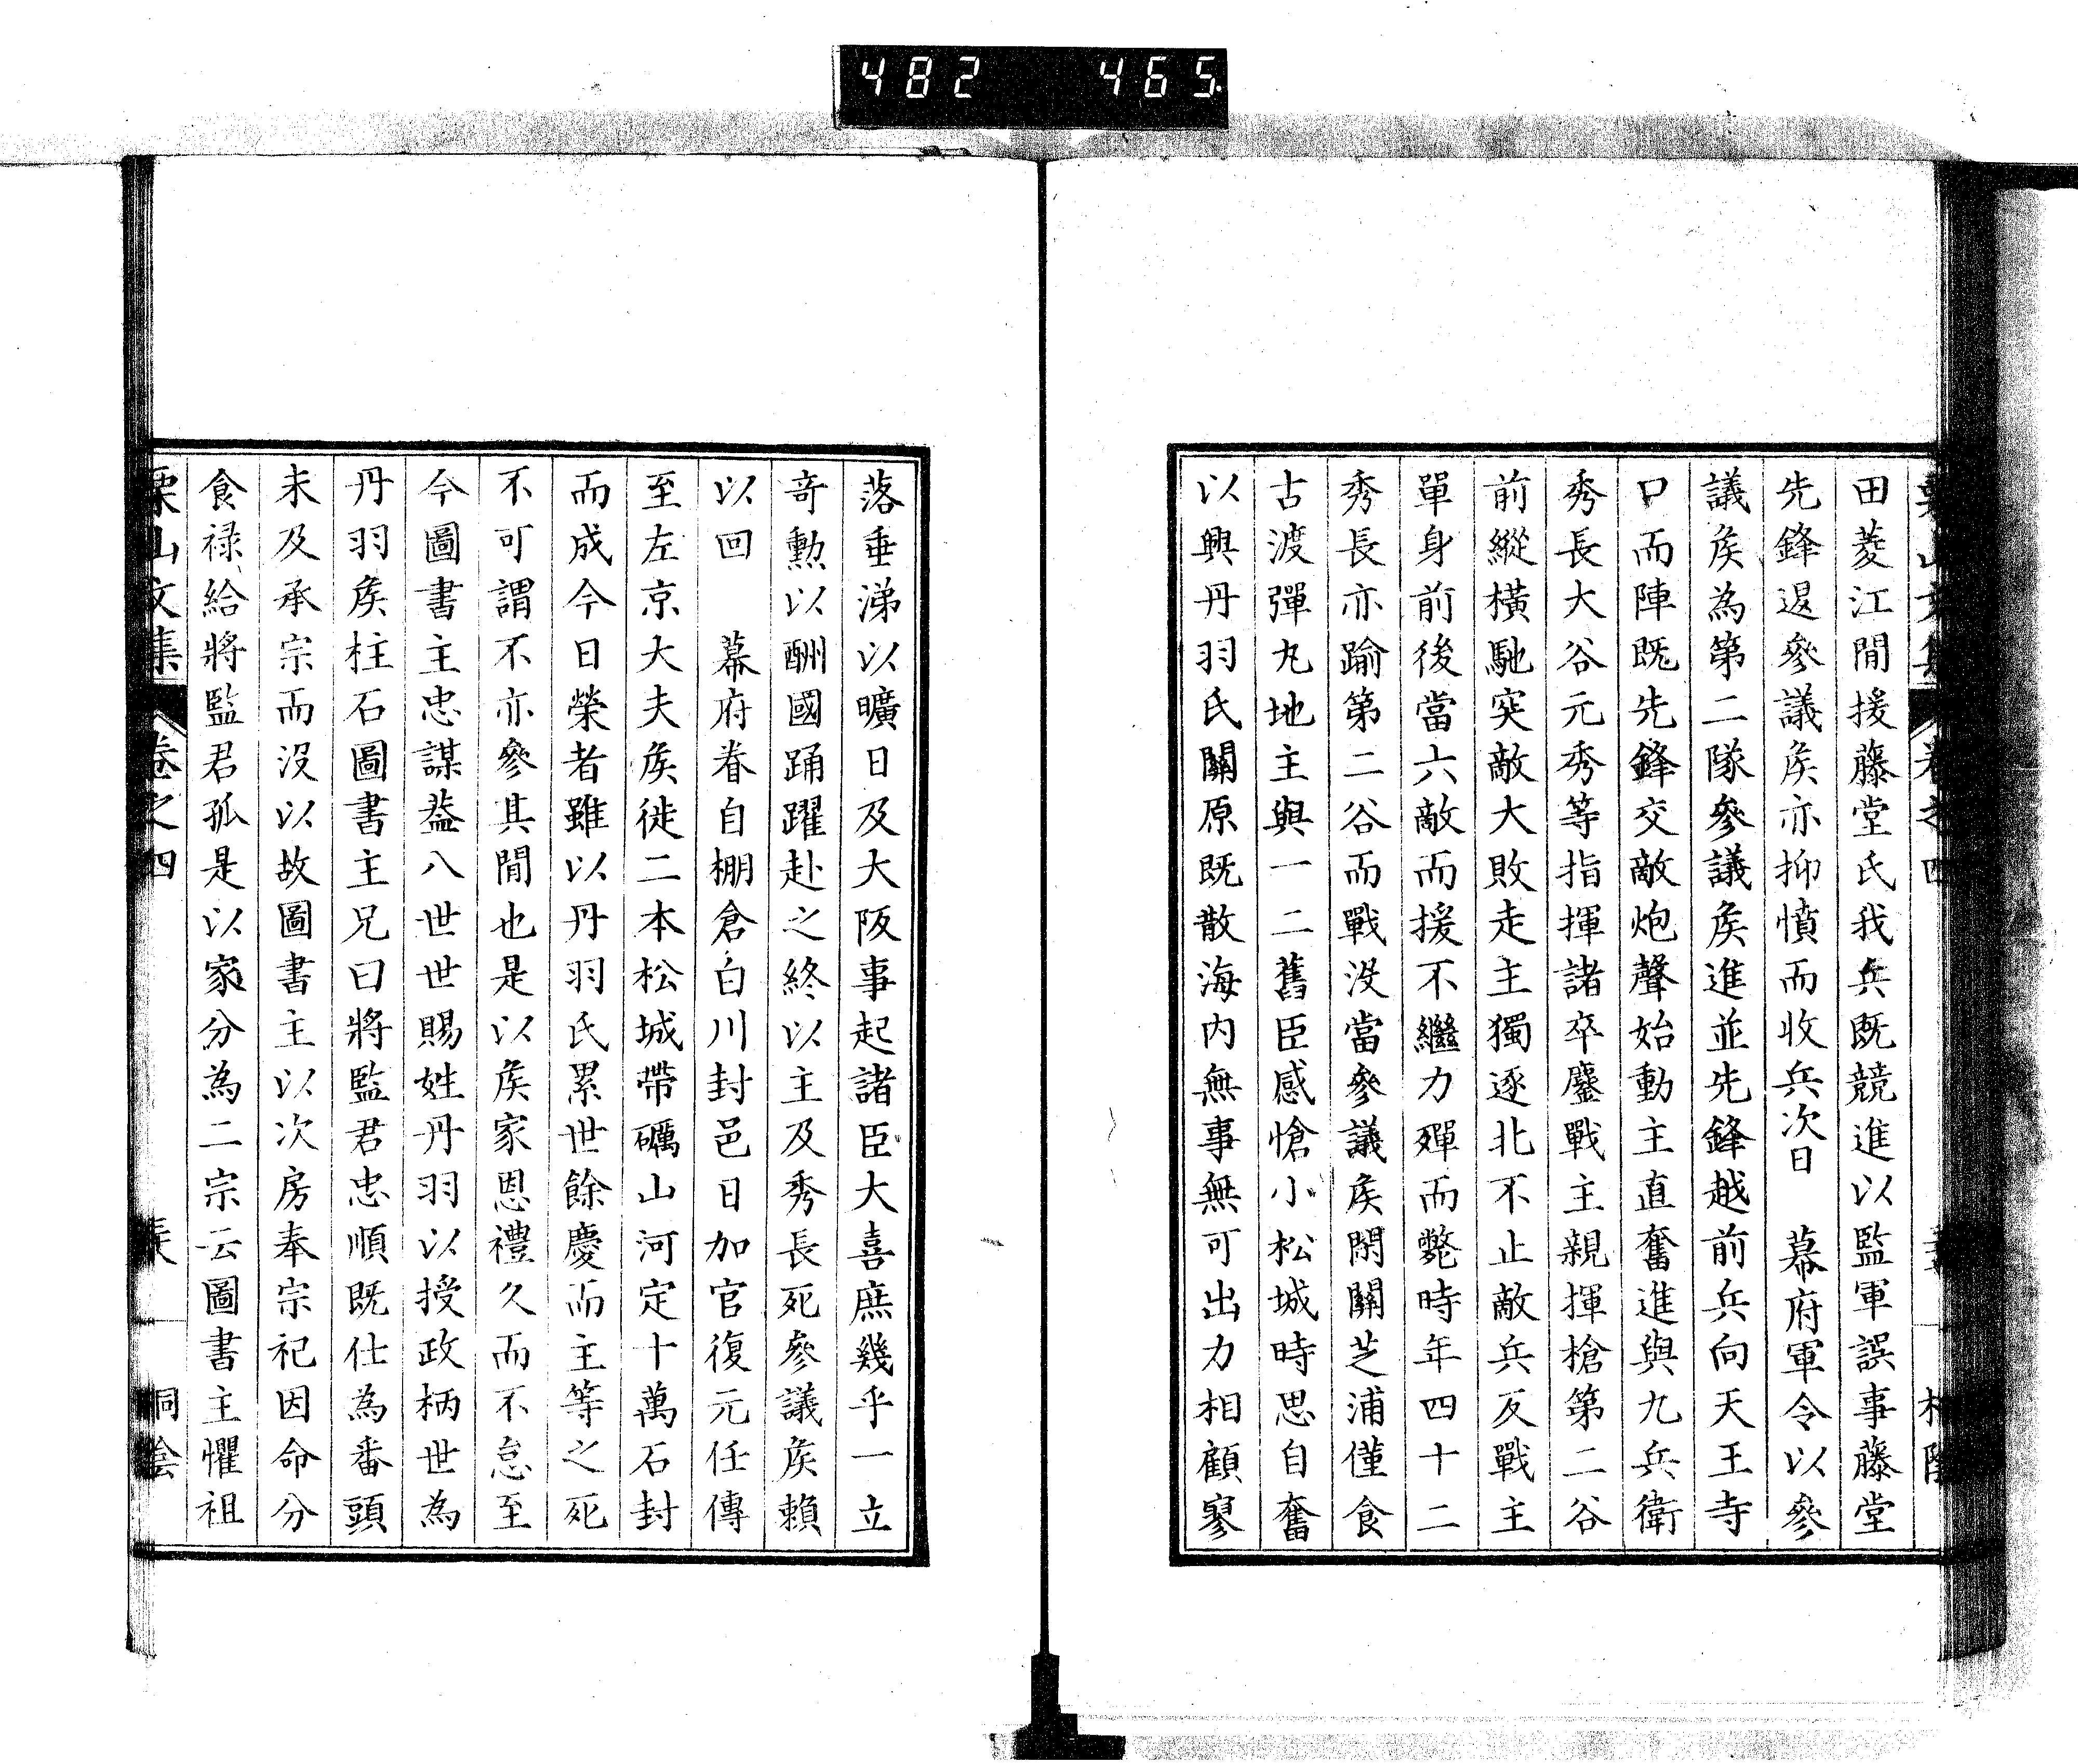 482 465
田菱江間援藤堂氏我兵既競進以監軍誤事藤堂
先鋒退參議矦亦抑憤而收兵次日　幕府軍令以參
議矦為第二隊參議矦進並先鋒越前兵向天王寺
口而陣既先鋒交敵炮聲始動主直奮進與九兵衛
秀長大谷元秀等指揮諸卒鏖戰主親揮槍第二谷
前縱橫馳突敵大敗走主獨逐北不止敵兵反戰主
單身前後當六敵而援不繼力殫而斃時年四十二
秀長亦踰第二谷而戰没當參議矦閉關芝浦僅食
古渡彈丸地主與一二舊臣感愴小松城時思自奮
以興丹羽氏關原既散海内無事無可出力相顧寥
落垂涕以曠日及大阪事起諸臣大喜庶幾乎一立
奇勲以酬國踊躍赴之終以主及秀長死參議矦賴
以回　幕府眷自棚倉白川封邑日加官復元任傳
至左京大夫矦徙二本松城帶礪山河定十萬石封
而成今日榮者雖以丹羽氏累世餘慶而主等之死
不可謂不亦參其間也是以矦家恩禮久而不怠至
今圖書主忠謀葢八世世賜姓丹羽以授政柄世為
丹羽矦柱石圖書主兄曰將監君忠順既仕為番頭
未及承宗而没以故圖書主以次房奉宗祀因命分
食禄給將監君孤是以家分為二宗云圖書主懼祖
栗山文集　卷之四